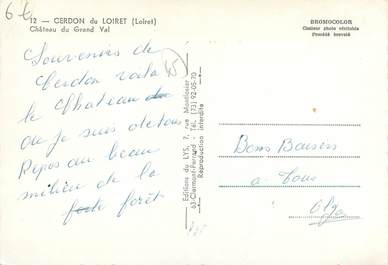 6 €
12 — CERDON du LOIRET (Loiret)
Château du Grand Val
BROMOCOLOR
Couleur photo véritable
Procédé breveté
Souvenirs de
Cerdon voila
le Chateau
ou je suis
Repos au beau
milieu de la
forêt
45
Editions du LYS, 7, rue Montlosier
63-Clermont-Ferrand - Tél. (73) 92-05-70
Reproduction interdite
Bons Baisers
a tous
Olga